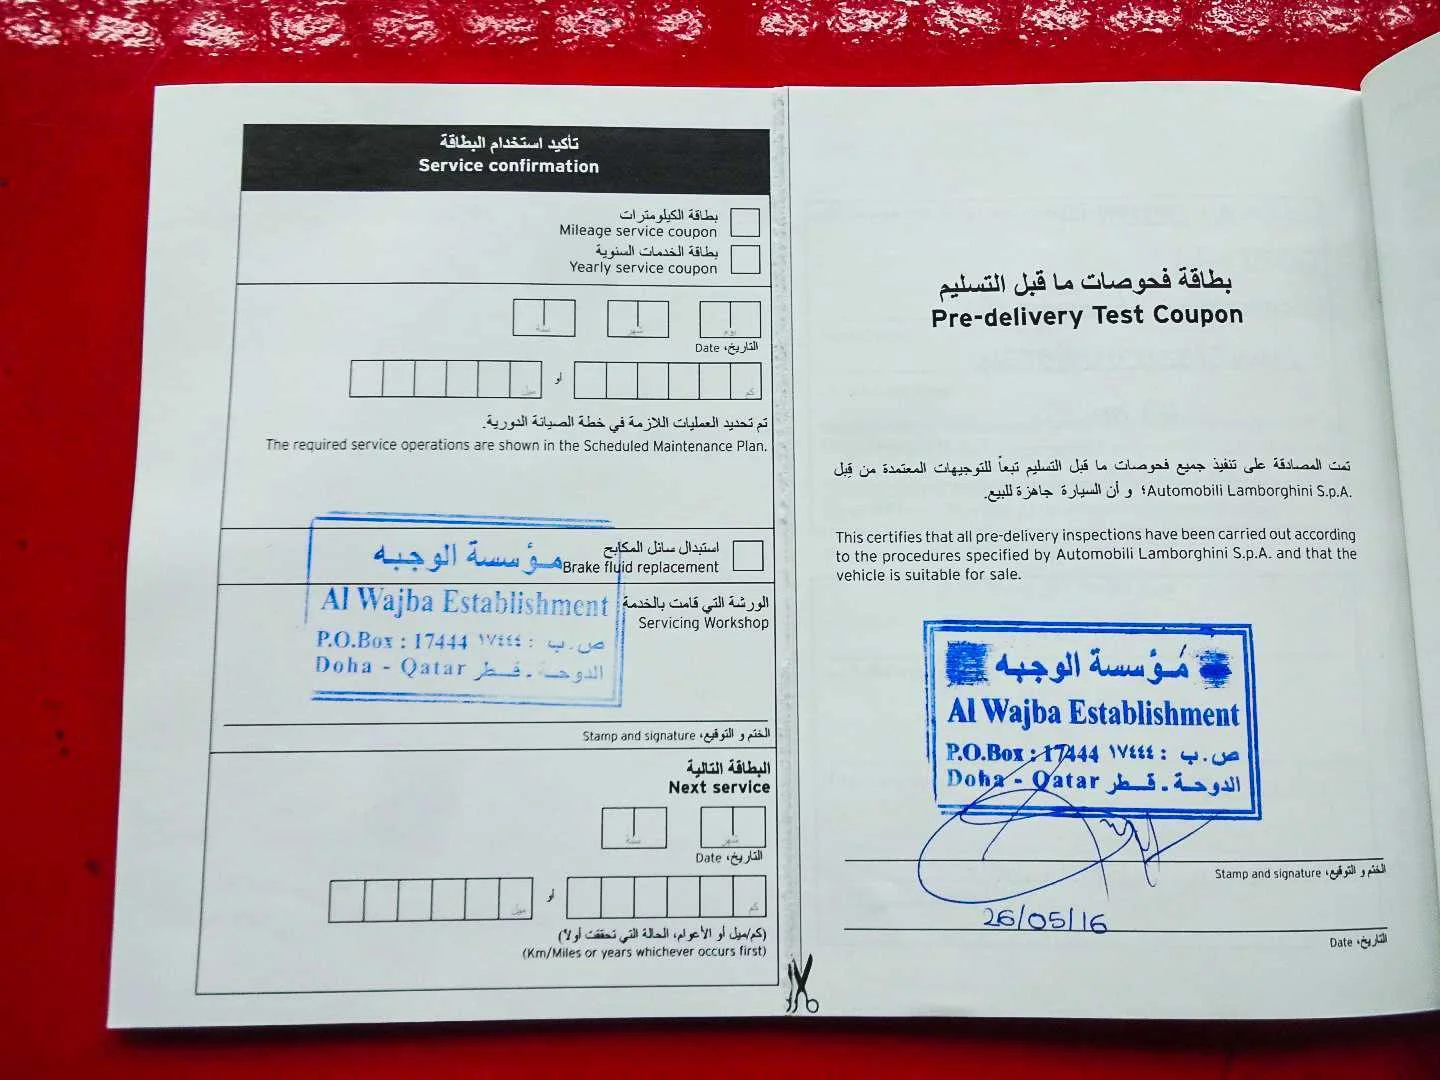 تأكيد استخدام البطاقة
Service confirmation
بطاقة الكيلومترات
Mileage service coupon
بطاقة الخدمات السنوية
Yearly service coupon
يوم
شهر
سنة
التاريخ، Date
كم
أو
ميل
تم تحديد العمليات اللازمة في خطة الصيانة الدورية.
The required service operations are shown in the Scheduled Maintenance Plan.
استبدال سائل المكابح
Brake fluid replacement
الورشة التي قامت بالخدمة
Servicing Workshop
مؤسسة الوجبه
Al Wajba Establishment
P.O.Box : 17444 ص.ب : ١٧٤٤٤
Doha - Qatar الدوحة - قطر
الختم و التوقيع، Stamp and signature
البطاقة التالية
Next service
شهر
سنة
التاريخ، Date
كم
أو
ميل
(كم/ميل أو الأعوام، الحالة التي تحققت أولاً)
(Km/Miles or years whichever occurs first)
بطاقة فحوصات ما قبل التسليم
Pre-delivery Test Coupon
تمت المصادقة على تنفيذ جميع فحوصات ما قبل التسليم تبعاً للتوجيهات المعتمدة من قِبل
Automobili Lamborghini S.p.A.؛ و أن السيارة جاهزة للبيع.
This certifies that all pre-delivery inspections have been carried out according
to the procedures specified by Automobili Lamborghini S.p.A. and that the
vehicle is suitable for sale.
مؤسسة الوجبه
Al Wajba Establishment
P.O.Box : 17444 ص.ب : ١٧٤٤٤
Doha - Qatar الدوحة - قطر
الختم و التوقيع، Stamp and signature
26/05/16
التاريخ، Date